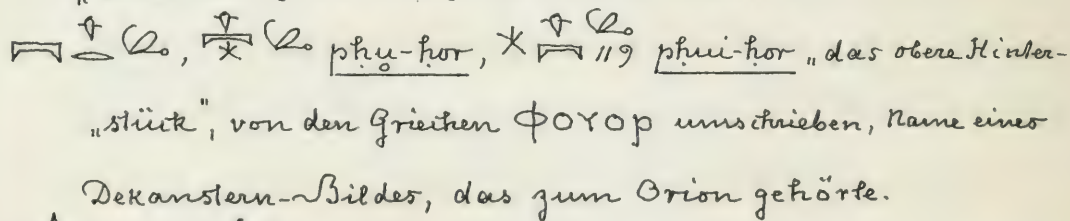 , pḥu̥-ḥor, pḥui-ḥor „das obere Hinter-
„stück", von den Griechen ΦΟΥΟΡ umschrieben, Name eines
Dekanstern-Bildes, das zum Orion gehörte.